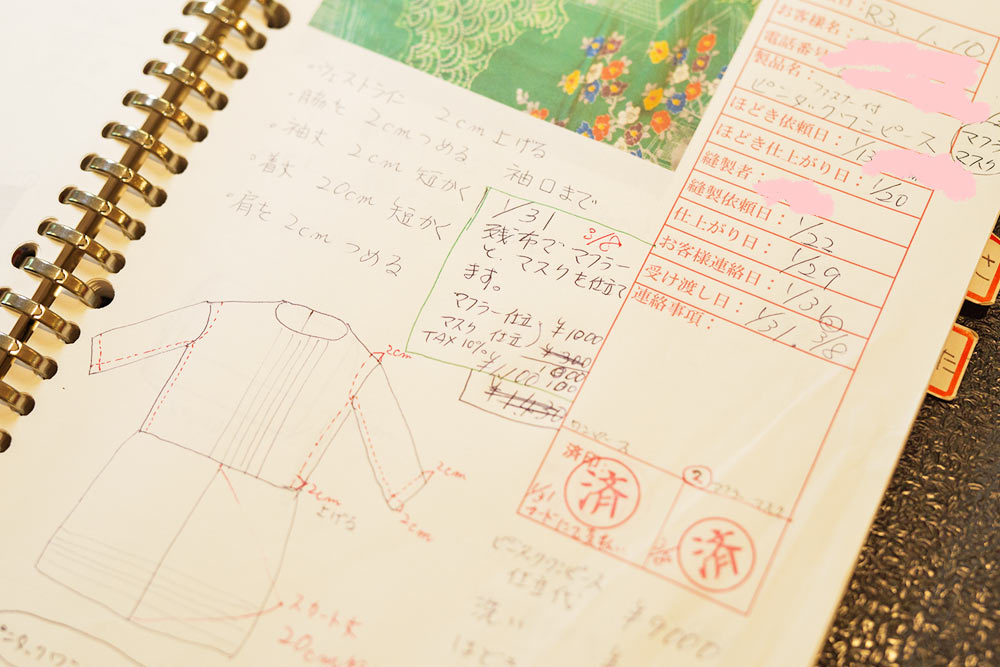 ・ウェストライン 2cm上げる
・脇を 2cmつめる 袖口まで
・袖丈 2cm 短かく
・着丈 20cm 短かく
・肩を 2cm つめる
1/31 3/8
残布でマフラー
と、マスクを仕立て
ます。
マフラー仕立 ¥1000
マスク 仕立 ¥300
TAX10% 100
¥1,100
¥1,430
2cm
2cm
2cm
上げる
2cm
スカート丈
20cm
R3. 1. 10
お客様名：
電話番号
製品名：ファスナー付
ピンタックワンピース
マフラー
マスク
ほどき依頼日：
ほどき仕上がり日：1/20
縫製者：
縫製依頼日：1/22
仕上がり日：1/29
お客様連絡日：1/31
受け渡し日：1/31. 3/8
連絡事項：
ワンピース
済印：
済
1/31
カードにて支払い
② マフラー マスク
済
ピンタックワンピース
仕立代 ¥9000
洗い